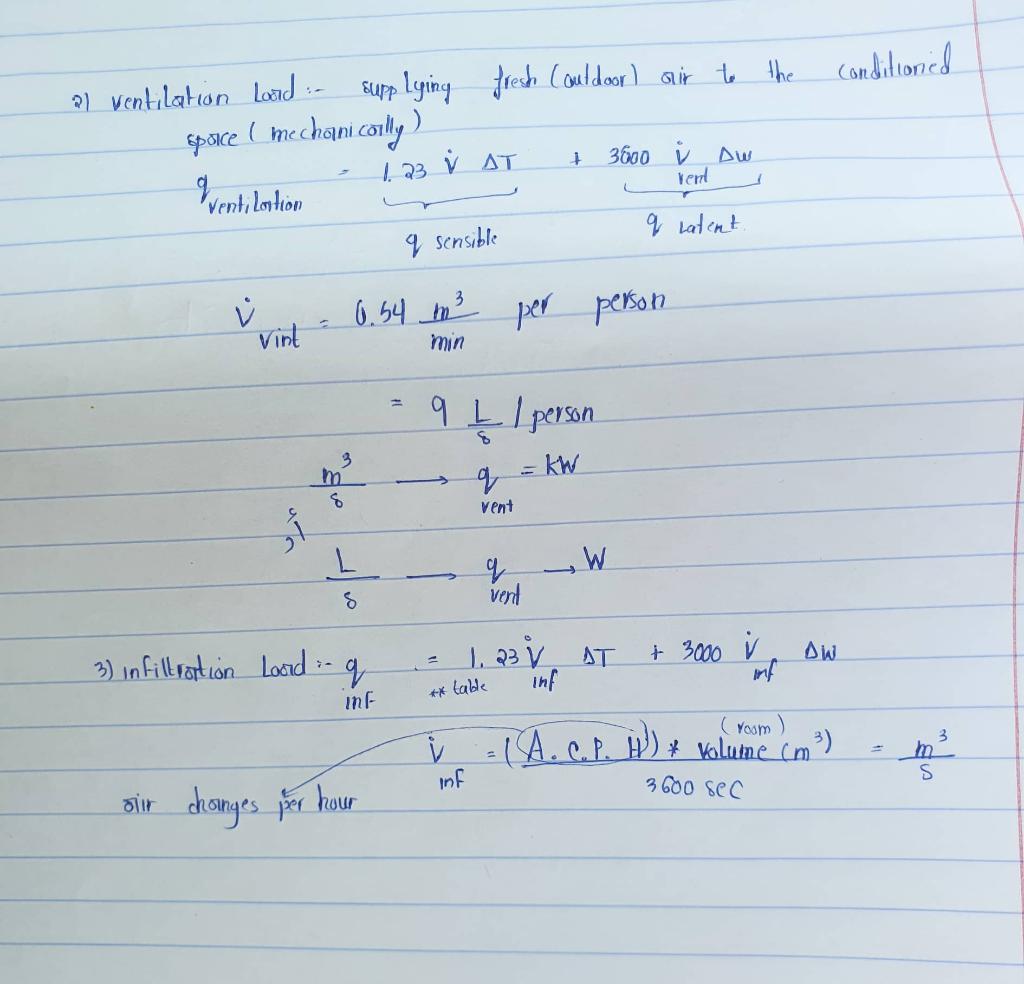 2) ventilation Load :- supplying fresh (outdoor) air to the conditioned
space (mechanically)
q ventilation = 1.23 v̇ ΔT + 3000 v̇ vent Δw
q sensible q Latent.
v̇ vint = 0.54 m³/min per person
= 9 L/s / person
m³/s → q vent = kW
أو
L/s → q vent → W
3) infiltration Load :- q inf = 1.23 v̇ inf ΔT + 3000 v̇ inf Δw
** table
v̇ inf = (A.C.P.H) * volume (room) (m³) / 3600 sec = m³/s
air changes per hour